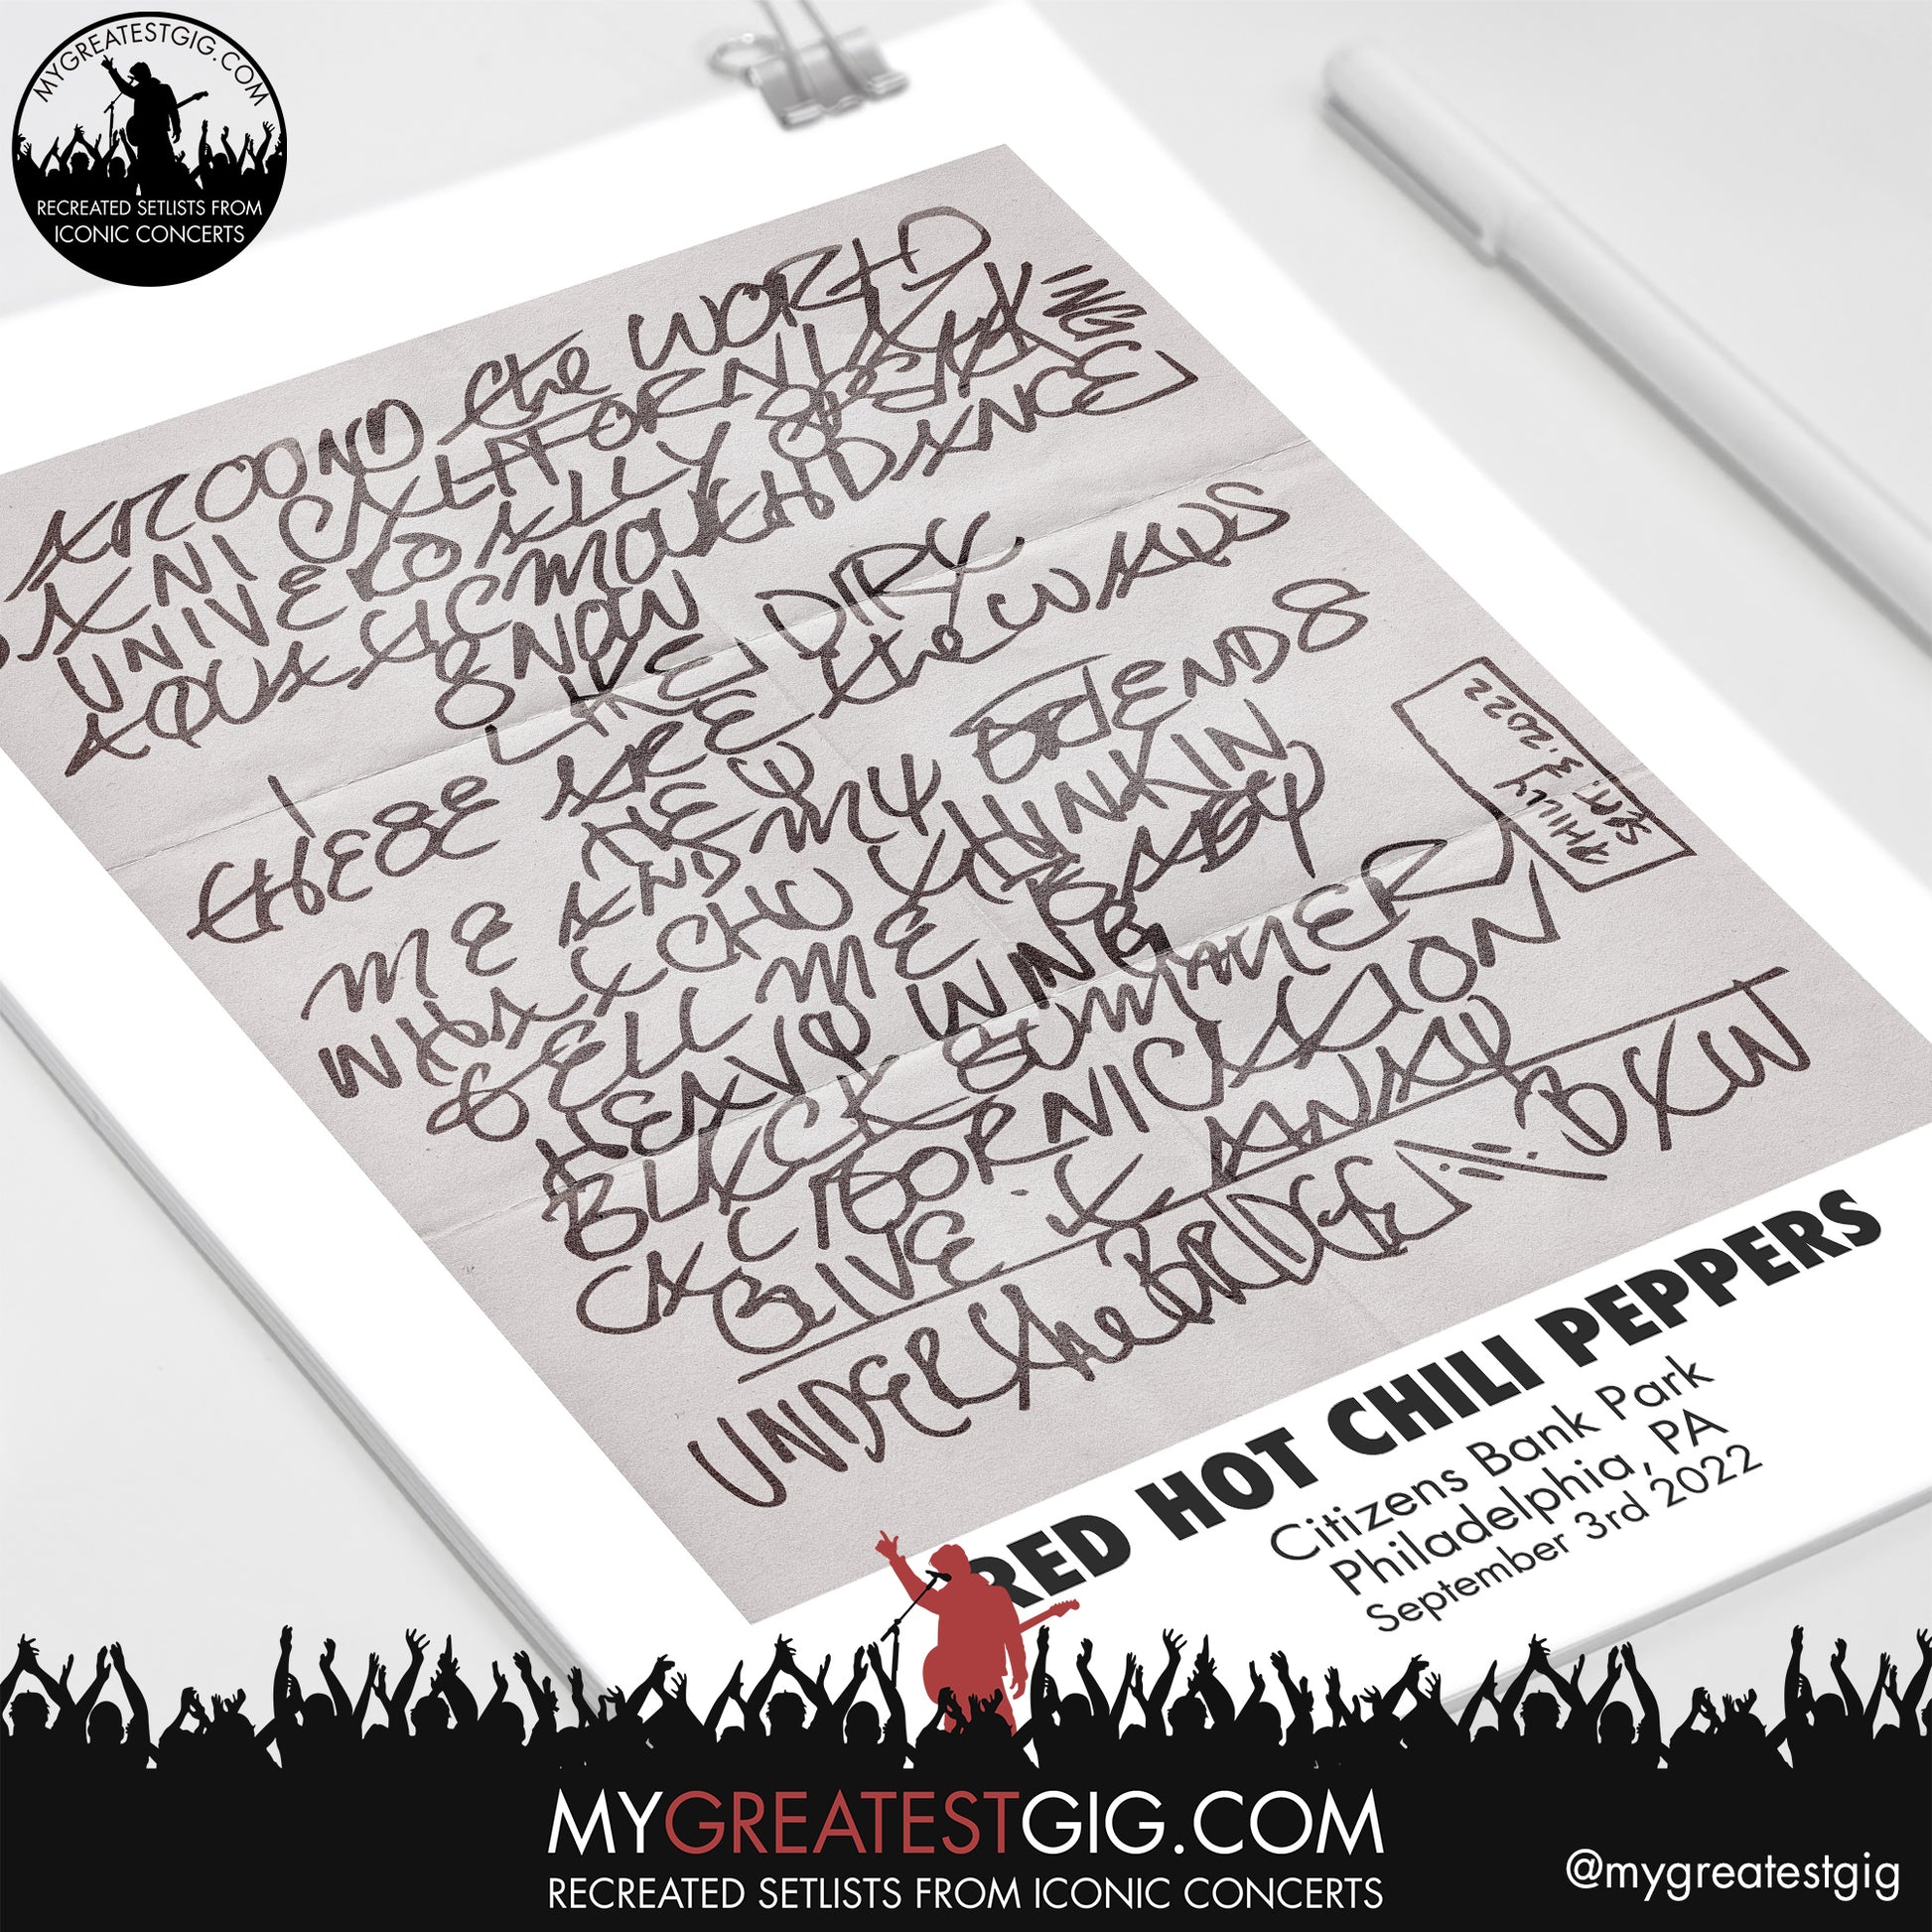 MYGREATESTGIG.COM
RECREATED SETLISTS FROM
ICONIC CONCERTS
AROUND the WORLD
DANI CALIFORNIA
UNIVERSALLY SPEAKING
AQUATIC MOUTH DANCE
SNOW
I LIKE DIRT
THESE ARE the WAYS
ME AND MY FRIENDS
WHATCHU THINKIN
TELL ME BABY
HEAVY WING
BLACK SUMMER
CALIFORNICATION
GIVE it AWAY
UNDER the BRIDGE BYTW
PHILLY
SEPT. 3. 2022
RED HOT CHILI PEPPERS
Citizens Bank Park
Philadelphia, PA
September 3rd 2022
MYGREATESTGIG.COM
RECREATED SETLISTS FROM ICONIC CONCERTS
@mygreatestgig